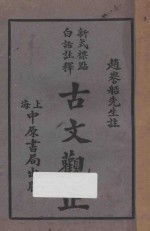 趙晷船先生註
新式標點
白話註釋
古文觀止
上海
中原書局出版